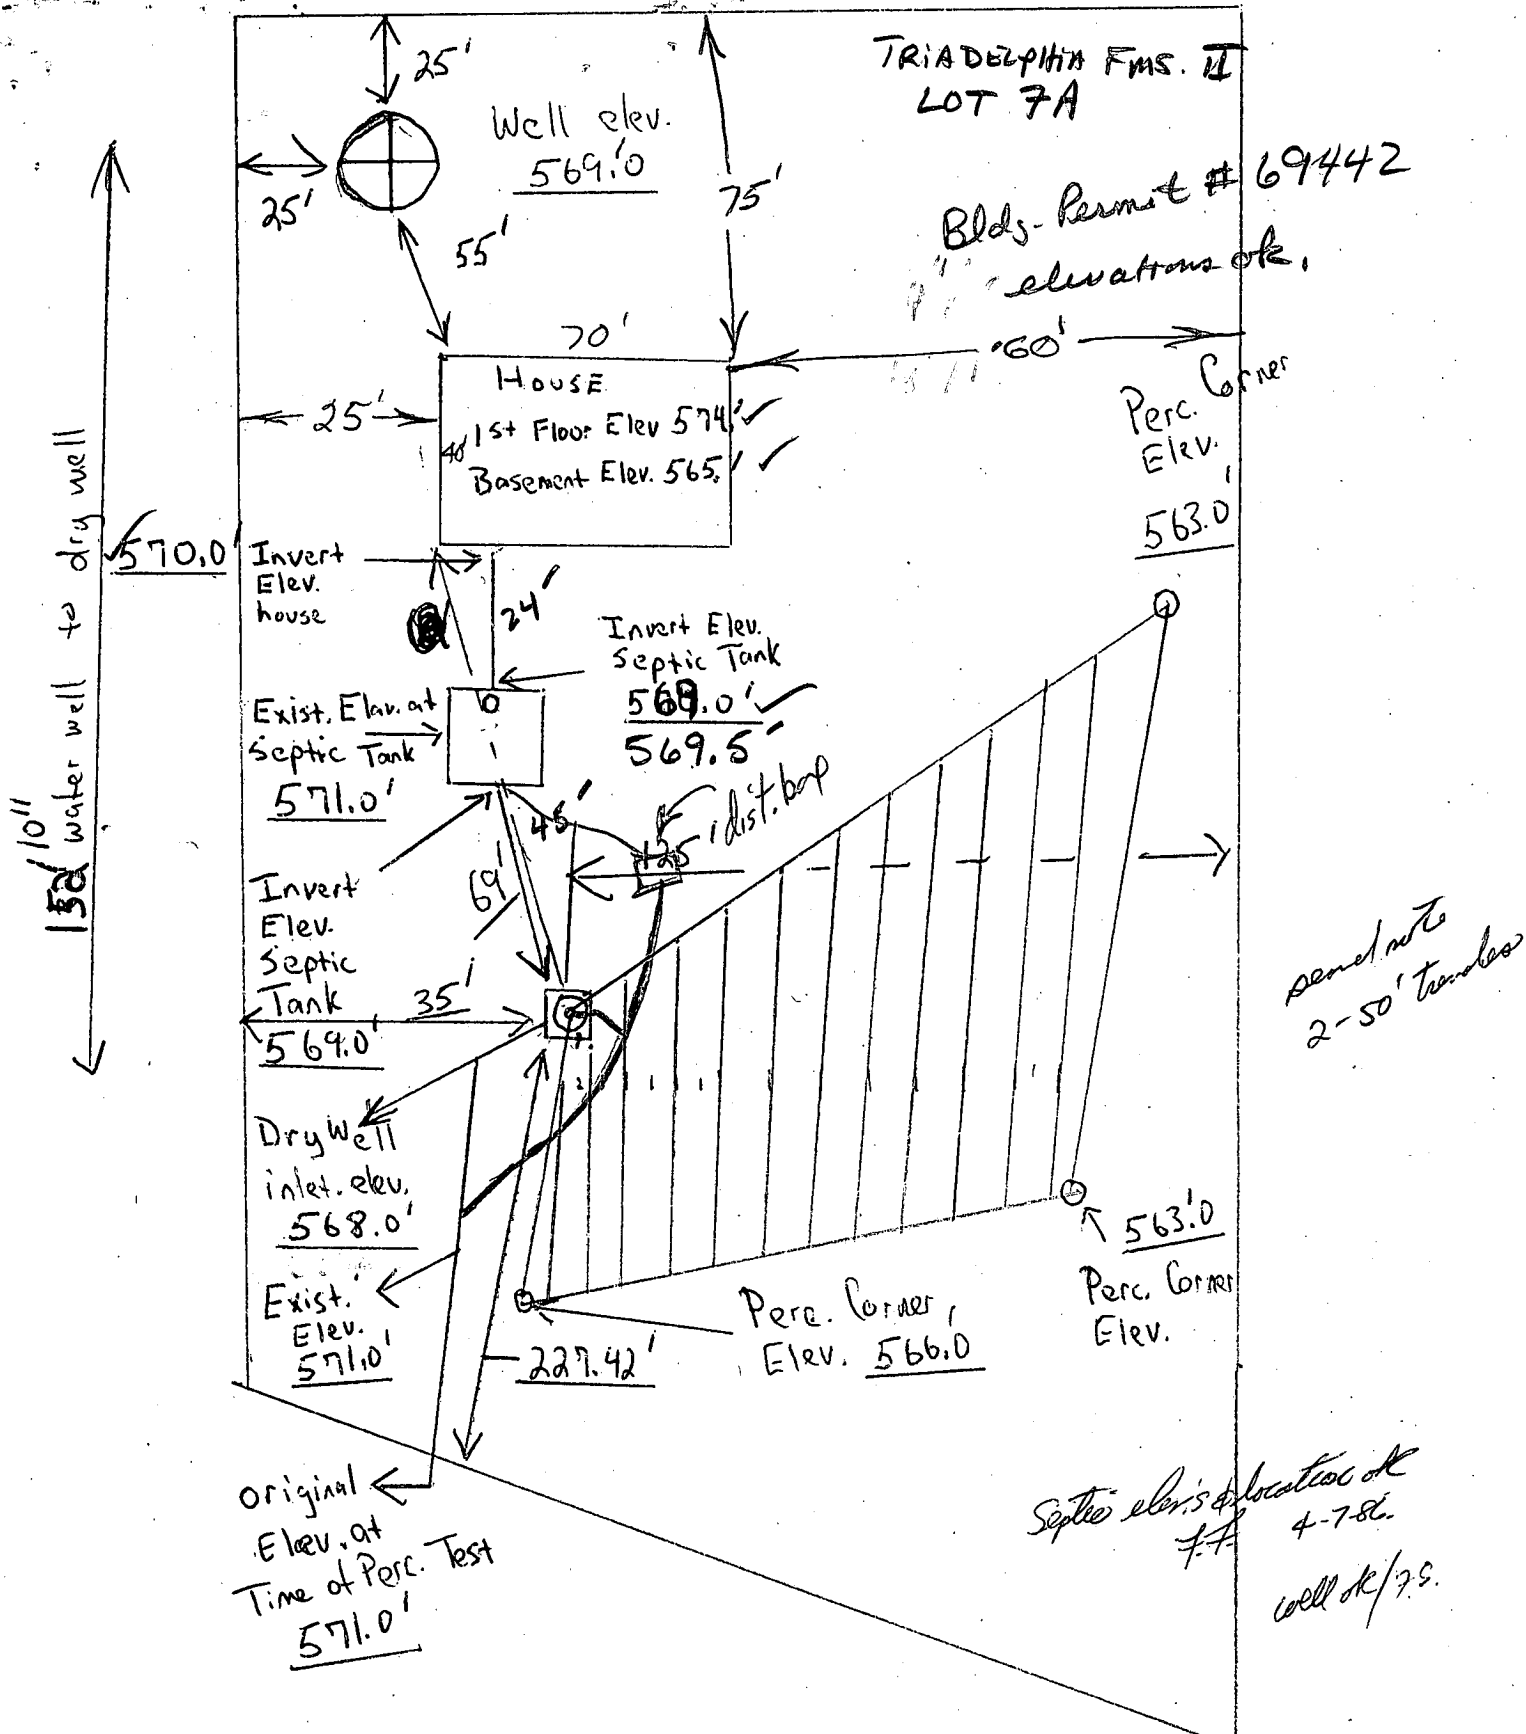 TRIADELPHIA FMS. II
LOT 7A
25'
Well elev.
569.'0
25'
75'
55'
Bldg. Permit # 69442
elevations ok.
70'
60'
HOUSE
1st Floor Elev 574.'
40'
Basement Elev. 565.'
25'
Perc. Corner
Elev.
563.0'
water well to dry well
570.0'
Invert
Elev.
house
24'
Invert Elev.
Septic Tank
569.0'
569.5'
Exist. Elev. at
Septic Tank
571.0'
45'
dist. box
125'
69'
Invert
Elev.
Septic
Tank
569.0'
35'
send note
2-50' trenches
Dry Well
inlet. elev.
568.0'
Exist.
Elev.
571.0'
227.42'
Perc. Corner
Elev. 566.0
563.'0
Perc. Corner
Elev.
original
Elev. at
Time of Perc. Test
571.0'
Septic elev.'s & location ok
4-7-86.
well ok/